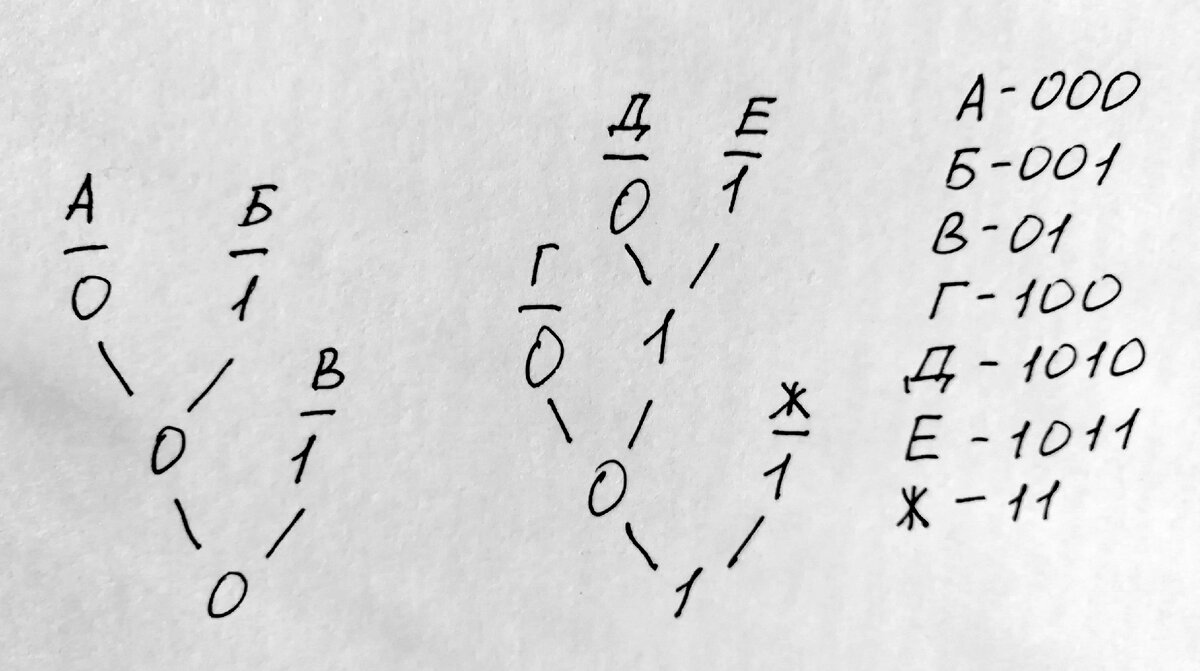 Д Е
0 1
А Б
0 1
Г
0 1
В
1
Ж
1
0
0
0
1
А - 000
Б - 001
В - 01
Г - 100
Д - 1010
Е - 1011
Ж - 11